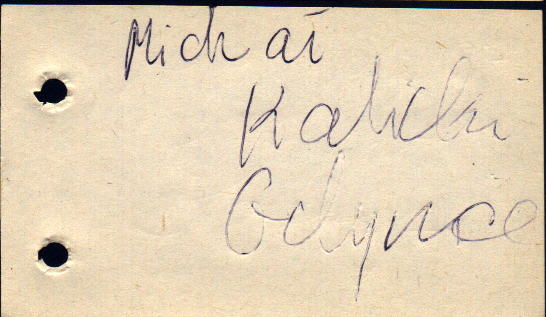 Michał
Kalicki
Odynce